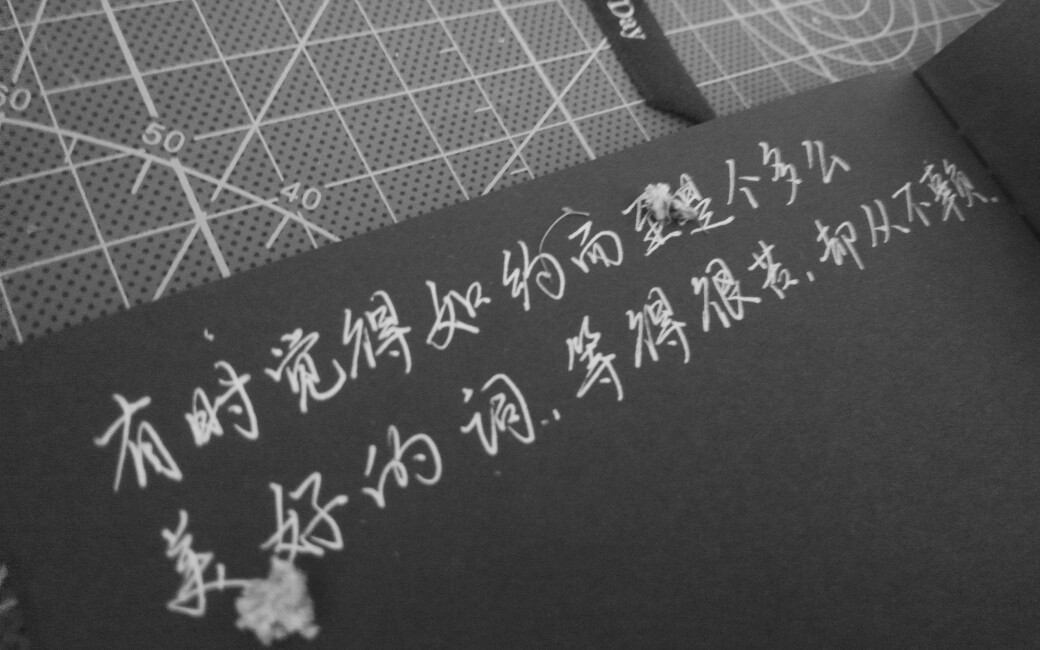 Day
60
50
40
有时觉得如约而至是个多么
美好的词..等得很苦,却从不辜负.